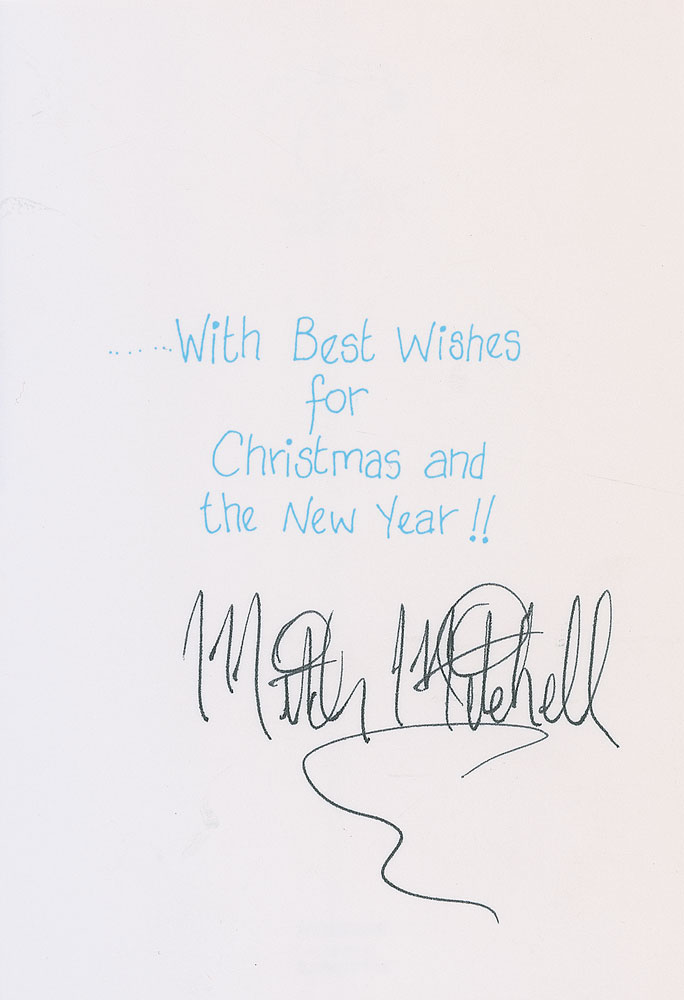 ...... With Best Wishes
for
Christmas and
the New Year !!
Mitch Mitchell